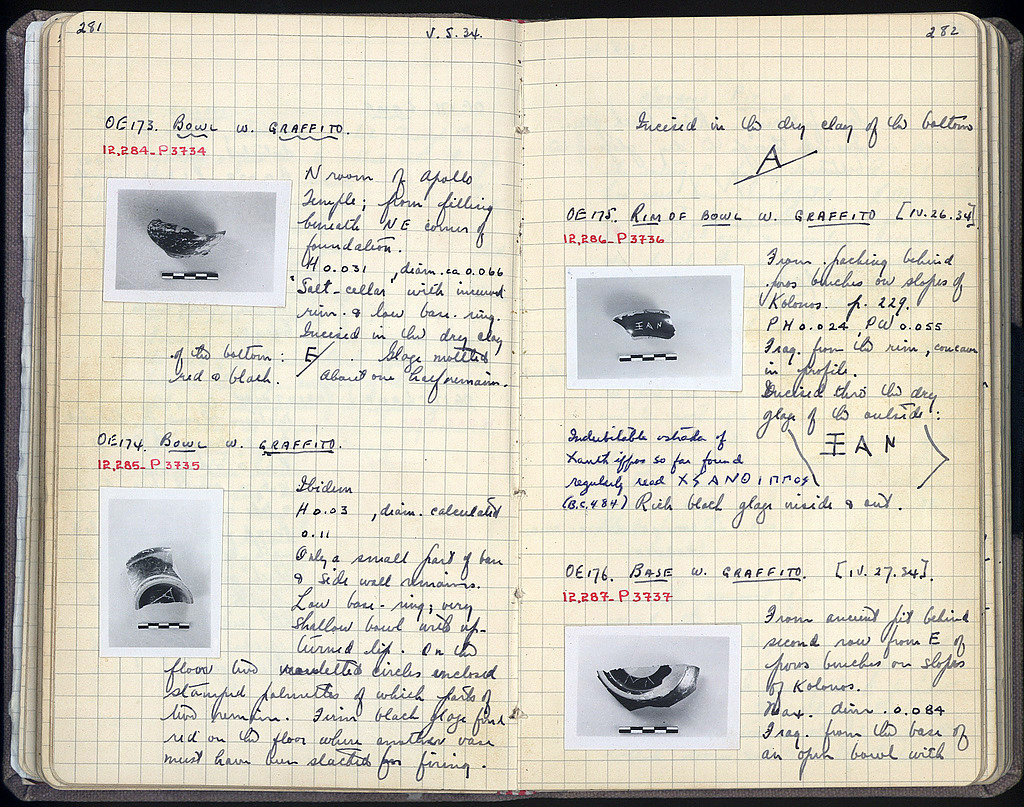 281
V.S.34.
OE173. BOWL W. GRAFFITO.
12,284-P3734
N room of Apollo
Temple; from filling
beneath NE corner of
foundation.
H 0.031 , diam. ca 0.066
"Salt-cellar" with incurved
rim & low base-ring.
Incised in the dry clay
of the bottom : E . Glaze mottled
red & black. About one half remains.
OE174. BOWL W. GRAFFITO.
12,285-P3735
Ibidem
H 0.03 , diam. calculated
0.11
Only a small part of base
& side wall remains.
Low base-ring; very
shallow bowl with up-
turned lip. On the
floor two circles enclosed
stamped palmettes of which parts of
two remain. Firm black glaze fired
red on the floor where another vase
must have been stacked for firing.
282
Incised in the dry clay of the bottom
A
OE175. RIM OF BOWL W. GRAFFITO [IV.26.34]
12,286-P3736
From packing behind
poros benches on slopes of
Kolonos. p. 229.
PH 0.024, PW 0.055
Frag. from the rim, concave
in profile.
Incised thro the dry
glaze of the outside :
ΞAN
Indubitable ostraka of
Xanthippos so far found
regularly read XSANΘIΠΠOS
(B.C. 484) Rich black glaze inside & out.
OE176. BASE W. GRAFFITO. [IV.27.34].
12,287-P3737
From ancient pit behind
second row from E of
poros benches on slopes
of Kolonos.
Max. dim. 0.084
Frag. from the base of
an open bowl with